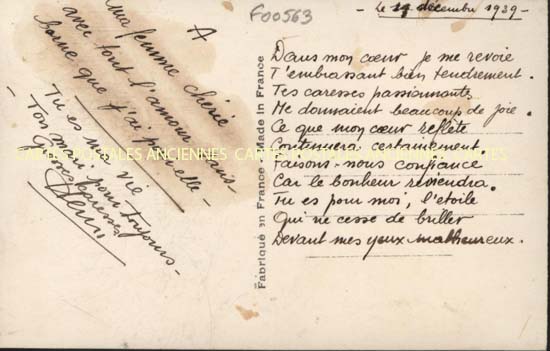 F00563
- Le 19 décembre 1939 -
A
ma femme chérie
avec tout l'amour sans
borne que j'ai pour elle -
Tu es ma vie
Ton mari pour toujours -
Grosses caresses
Henri
Fabriqué en France Made in France
Dans mon cœur je me revoie
T'embrassant bien tendrement.
Tes caresses passionnants
Me donnaient beaucoup de joie.
Ce que mon cœur reflète
Continuera certainement.
Faisons-nous confiance
Car le bonheur reviendra.
Tu es pour moi, l'étoile
Qui ne cesse de briller
Devant mes yeux malheureux.
CARTES POSTALES ANCIENNES CARTES